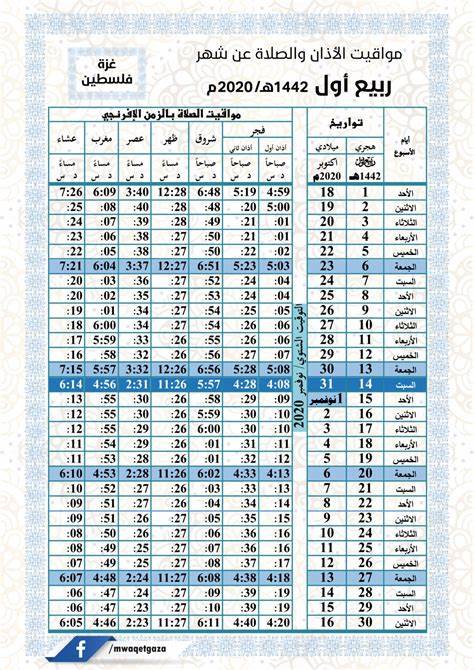 مواقيت الأذان والصلاة عن شهر
ربيع أول 1442هـ/2020م
غزة
فلسطين
تواريخ
مواقيت الصلاة بالزمن الإفرنجي
أيام الأسبوع
هجري
ربيع أول
1442هـ
ميلادي
أكتوبر
2020م
فجر شروق ظهر عصر مغرب عشاء
أذان أول أذان ثاني
صباحاً صباحاً صباحاً مساءً مساءً مساءً مساءً
د س د س د س د س د س د س د س
الأحد 1 18 4:59 5:19 6:48 12:28 3:40 6:09 7:26
الاثنين 2 19 5:00 :20 :48 :28 :40 :08 :25
الثلاثاء 3 20 :01 :21 :49 :28 :39 :07 :24
الأربعاء 4 21 :01 :21 :50 :27 :38 :06 :23
الخميس 5 22 :02 :22 :51 :27 :38 :05 :22
الجمعة 6 23 5:03 5:23 6:51 12:27 3:37 6:04 7:21
السبت 7 24 :04 :24 :52 :27 :36 :03 :20
الأحد 8 25 :04 :24 :53 :27 :35 :02 :20
الاثنين 9 26 :05 :25 :54 :27 :34 :01 :19
الثلاثاء 10 27 :06 :26 :54 :27 :34 6:00 :18
الأربعاء 11 28 :06 :26 :55 :27 :33 5:59 :17
الخميس 12 29 :07 :27 :56 :26 :32 :58 :16
الجمعة 13 30 5:08 5:28 6:56 12:26 3:32 5:57 7:15
السبت 14 31 4:08 4:28 5:57 11:26 2:31 4:56 6:14
الأحد 15 1نوفمبر :09 :29 :58 :26 :30 :55 :13
الاثنين 16 2 :10 :30 5:59 :26 :30 :55 :12
الثلاثاء 17 3 :11 :30 6:00 :26 :29 :54 :12
الأربعاء 18 4 :12 :31 :01 :26 :29 :54 :11
الخميس 19 5 :12 :32 :01 :26 :28 :53 :11
الجمعة 20 6 4:13 4:33 6:02 11:26 2:28 4:53 6:10
السبت 21 7 :14 :34 :03 :26 :27 :52 :10
الأحد 22 8 :15 :34 :04 :26 :27 :51 :09
الاثنين 23 9 :15 :35 :05 :27 :26 :51 :09
الثلاثاء 24 10 :16 :36 :06 :27 :26 :50 :08
الأربعاء 25 11 :17 :37 :07 :27 :25 :49 :08
الخميس 26 12 :17 :37 :07 :27 :25 :49 :07
الجمعة 27 13 4:18 4:38 6:08 11:27 2:24 4:48 6:07
السبت 28 14 :19 :39 :09 :27 :24 :47 :06
الأحد 29 15 :20 :39 :10 :27 :24 :47 :06
الاثنين 30 16 4:20 4:40 6:11 11:27 2:23 4:46 6:05
التوقيت الشتوي/ نوفمبر 2020
f /mwaqetgaza